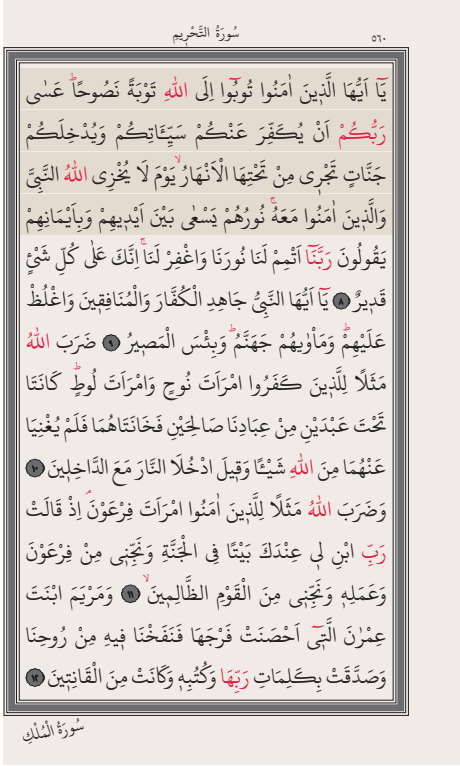 سُورَةُ التَّحْرِيمِ
٥٦٠
يَٓا اَيُّهَا الَّذٖينَ اٰمَنُوا تُوبُٓوا اِلَى اللّٰهِ تَوْبَةً نَصُوحًاۜ عَسٰى
رَبُّكُمْ اَنْ يُكَفِّرَ عَنْكُمْ سَيِّـَٔاتِكُمْ وَيُدْخِلَكُمْ
جَنَّاتٍ تَجْرٖى مِنْ تَحْتِهَا الْاَنْهَارُۙ يَوْمَ لَا يُخْزِى اللّٰهُ النَّبِىَّ
وَالَّذٖينَ اٰمَنُوا مَعَهُۚ نُورُهُمْ يَسْعٰى بَيْنَ اَيْدٖيهِمْ وَبِاَيْمَانِهِمْ
يَقُولُونَ رَبَّنَٓا اَتْمِمْ لَنَا نُورَنَا وَاغْفِرْ لَنَاۚ اِنَّكَ عَلٰى كُلِّ شَیْءٍ
قَدٖيرٌ ٨ يَٓا اَيُّهَا النَّبِىُّ جَاهِدِ الْكُفَّارَ وَالْمُنَافِقٖينَ وَاغْلُظْ
عَلَيْهِمْۜ وَمَأْوٰيهُمْ جَهَنَّمُۜ وَبِئْسَ الْمَصٖيرُ ٩ ضَرَبَ اللّٰهُ
مَثَلًا لِلَّذٖينَ كَفَرُوا امْرَاَتَ نُوحٍ وَامْرَاَتَ لُوطٍۜ كَانَتَا
تَحْتَ عَبْدَيْنِ مِنْ عِبَادِنَا صَالِحَيْنِ فَخَانَتَاهُمَا فَلَمْ يُغْنِيَا
عَنْهُمَا مِنَ اللّٰهِ شَيْـًٔا وَقٖيلَ ادْخُلَا النَّارَ مَعَ الدَّاخِلٖينَ ١٠
وَضَرَبَ اللّٰهُ مَثَلًا لِلَّذٖينَ اٰمَنُوا امْرَاَتَ فِرْعَوْنَۘ اِذْ قَالَتْ
رَبِّ ابْنِ لٖى عِنْدَكَ بَيْتًا فِى الْجَنَّةِ وَنَجِّنٖى مِنْ فِرْعَوْنَ
وَعَمَلِهٖ وَنَجِّنٖى مِنَ الْقَوْمِ الظَّالِمٖينَۙ ١١ وَمَرْيَمَ ابْنَتَ
عِمْرٰنَ الَّتٖٓى اَحْصَنَتْ فَرْجَهَا فَنَفَخْنَا فٖيهِ مِنْ رُوحِنَا
وَصَدَّقَتْ بِكَلِمَاتِ رَبِّهَا وَكُتُبِهٖ وَكَانَتْ مِنَ الْقَانِتٖينَ ١٢
سُورَةُ الْمُلْكِ